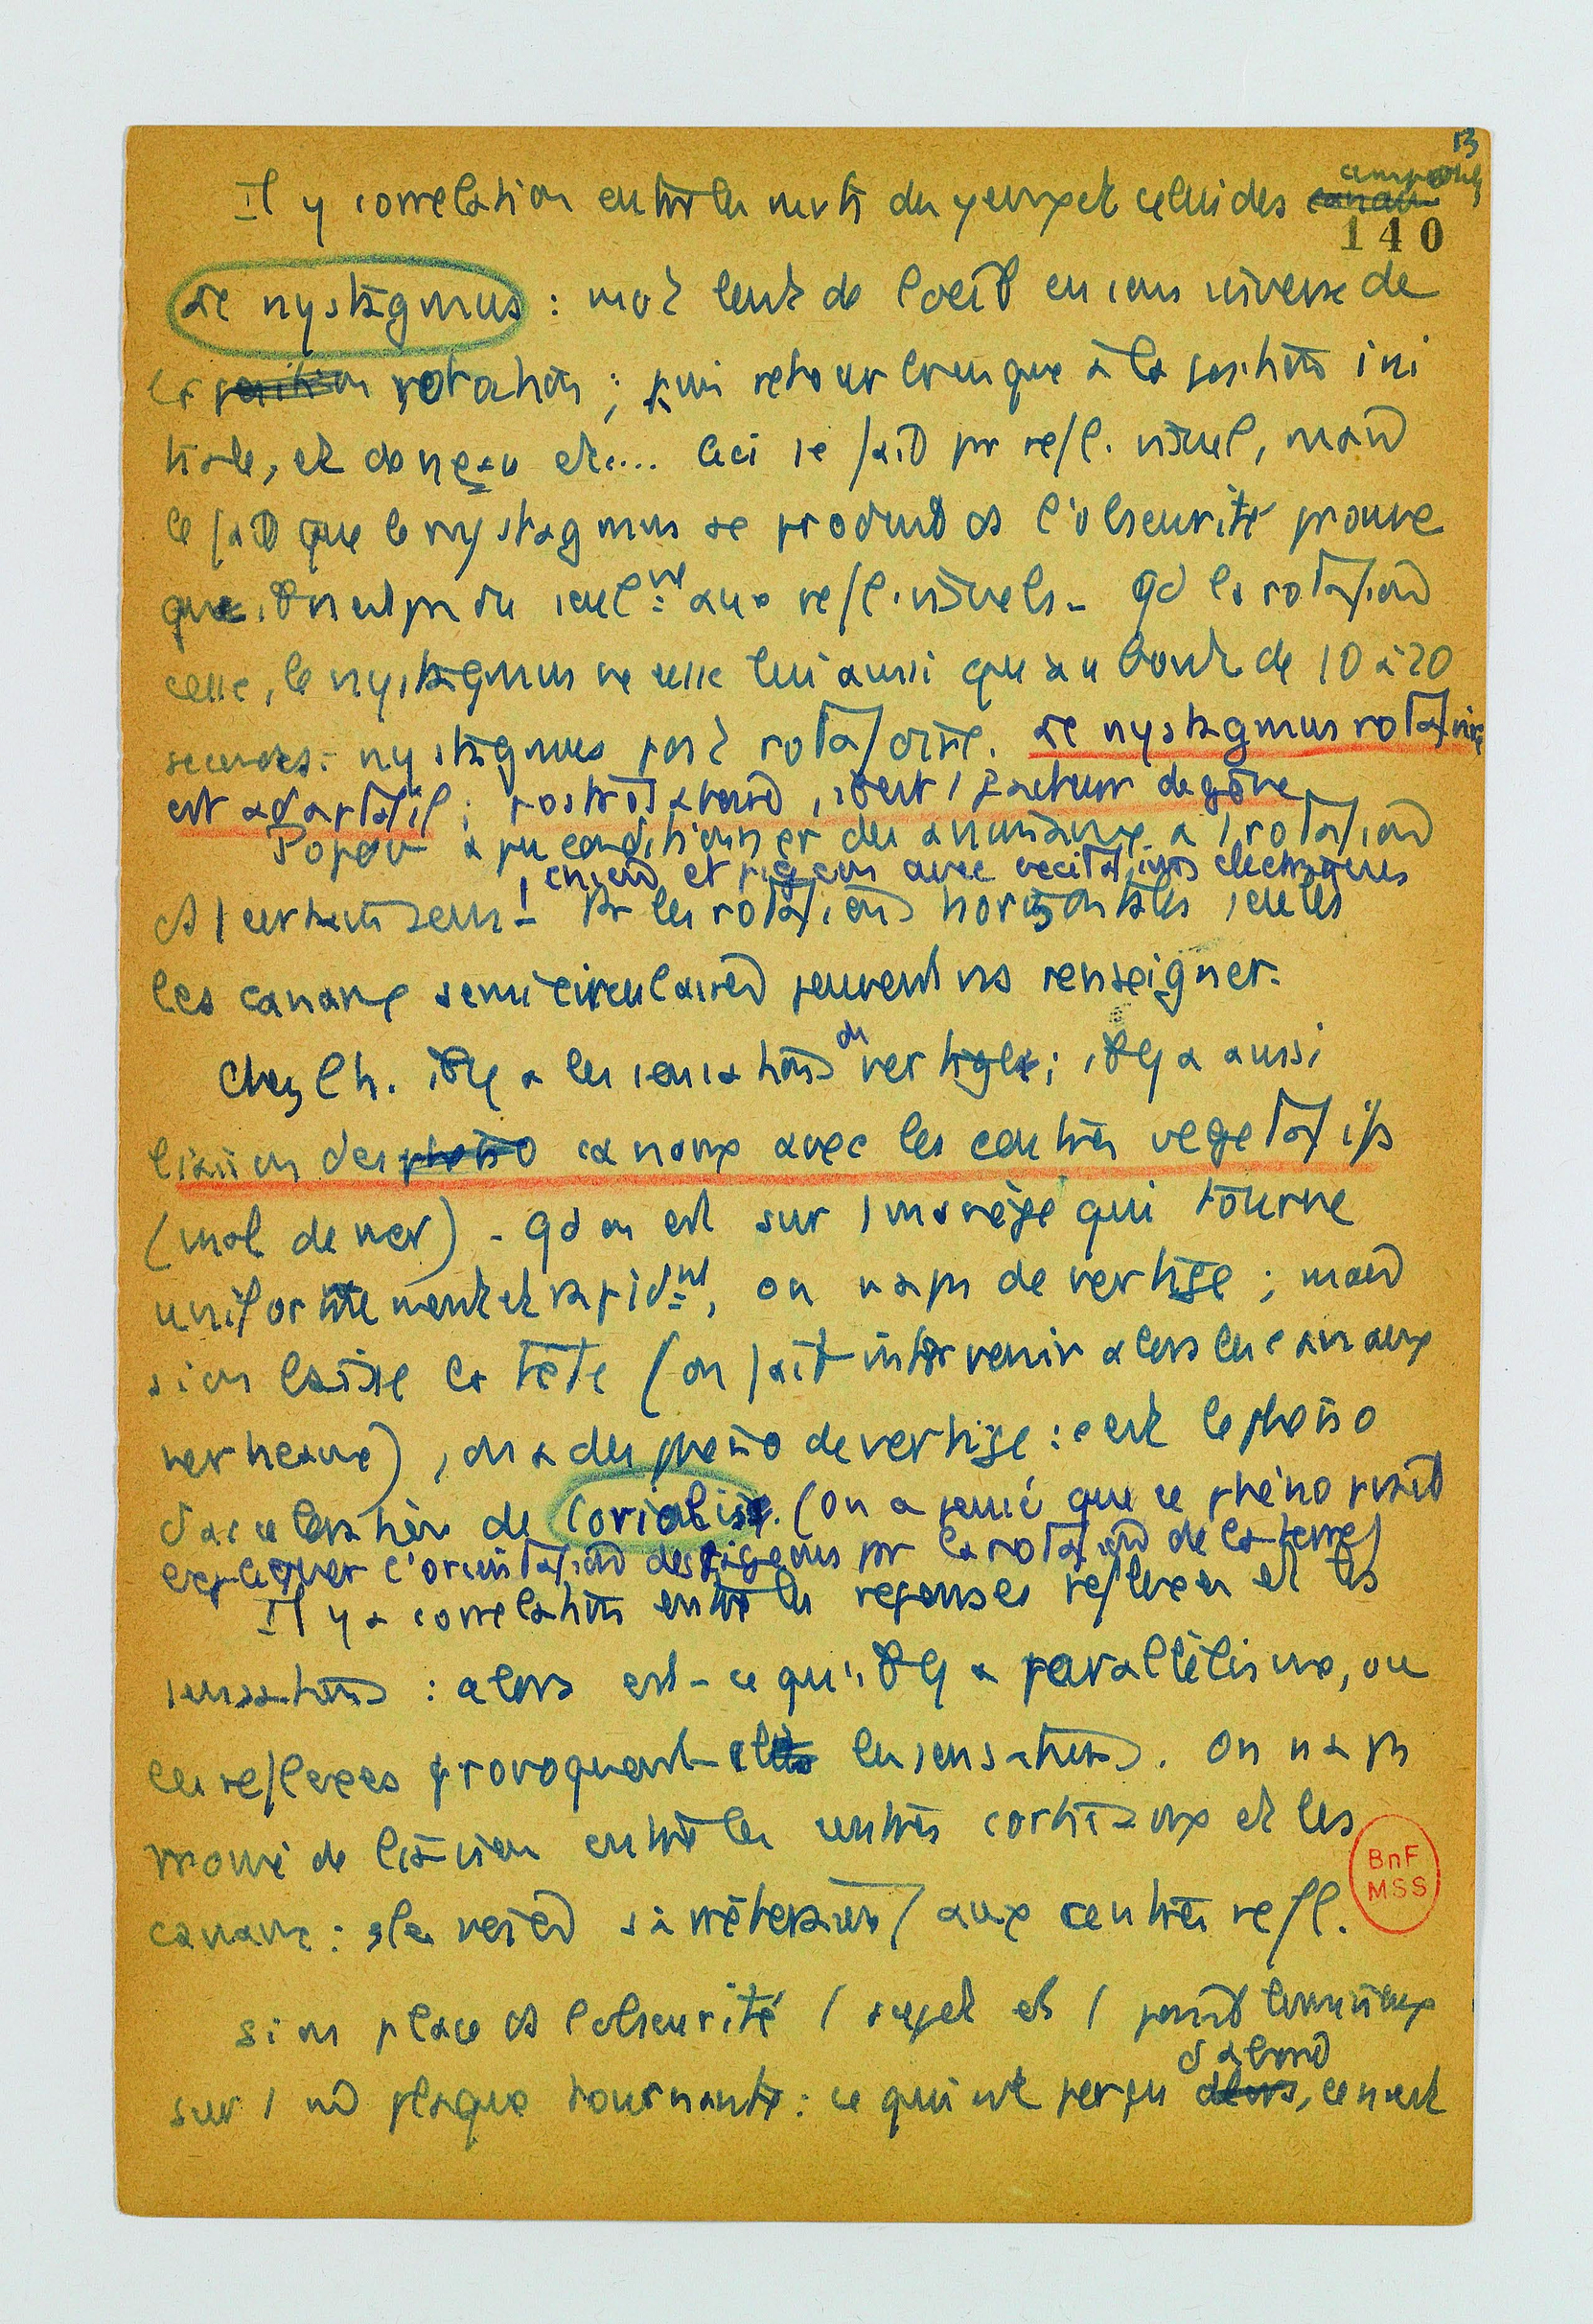 13
Il y correlation entre les mvts des yeux et celui des ~~canaux~~ ampoules
140
Le nystagmus : mvt lent de l'oeil en sens inverse de
la ~~position~~ rotation ; puis retour brusque à la position ini
tiale, et de nveau etc.... Ceci se fait par refl. visuel, mais
le fait que le nystagmus se produit ds l'obscurité prouve
que il n'est pas du seulmt aux refl. visuels - Qd la rotation
cesse, le nystagmus ne cesse lui aussi qu'au bout de 10 à 20
secondes : nystagmus post rotatoire. Le nystagmus rotatoire
est adaptatif ; rotatoire, c'est 1 facteur de gêne
Popov a pu conditionner des animaux à 1 rotation
chiens et pigeons avec excitations électriques
ds 1 certain sens ! Pr les rotations horizontales seules
les canaux semi circulaires peuvent ns renseigner.
Chez l'h. il y a les sensations de vertige ; il y a aussi
liaison des ~~phéno~~ canaux avec les centres végétatifs
(mal de mer) - Qd on est sur 1 manège qui tourne
uniformément et rapidmt, on n'a pas de vertige ; mais
si on baisse la tête (on fait intervenir alors les canaux
verticaux), on a des phéno de vertige : c'est le phéno
d'accelération de Coriolis. (on a pensé que ce phéno pouvait
expliquer l'orientation des pigeons par la rotation de la terre)
Il y a correlation entre les reponses reflexes et les
sensations : alors est-ce qu'il y a parallélisme, ou
les reflexes provoquent-ils les sensations. On n'a pas
trouvé de liaison entre les centres corticaux et les
canaux : les voies s'arrêteraient aux centres refl.
BnF
MSS
Si on place ds l'obscurité 1 sujet et 1 point lumineux
sur 1 plaque tournante : ce qui est perçu ~~alors~~ d'abord, ce n'est